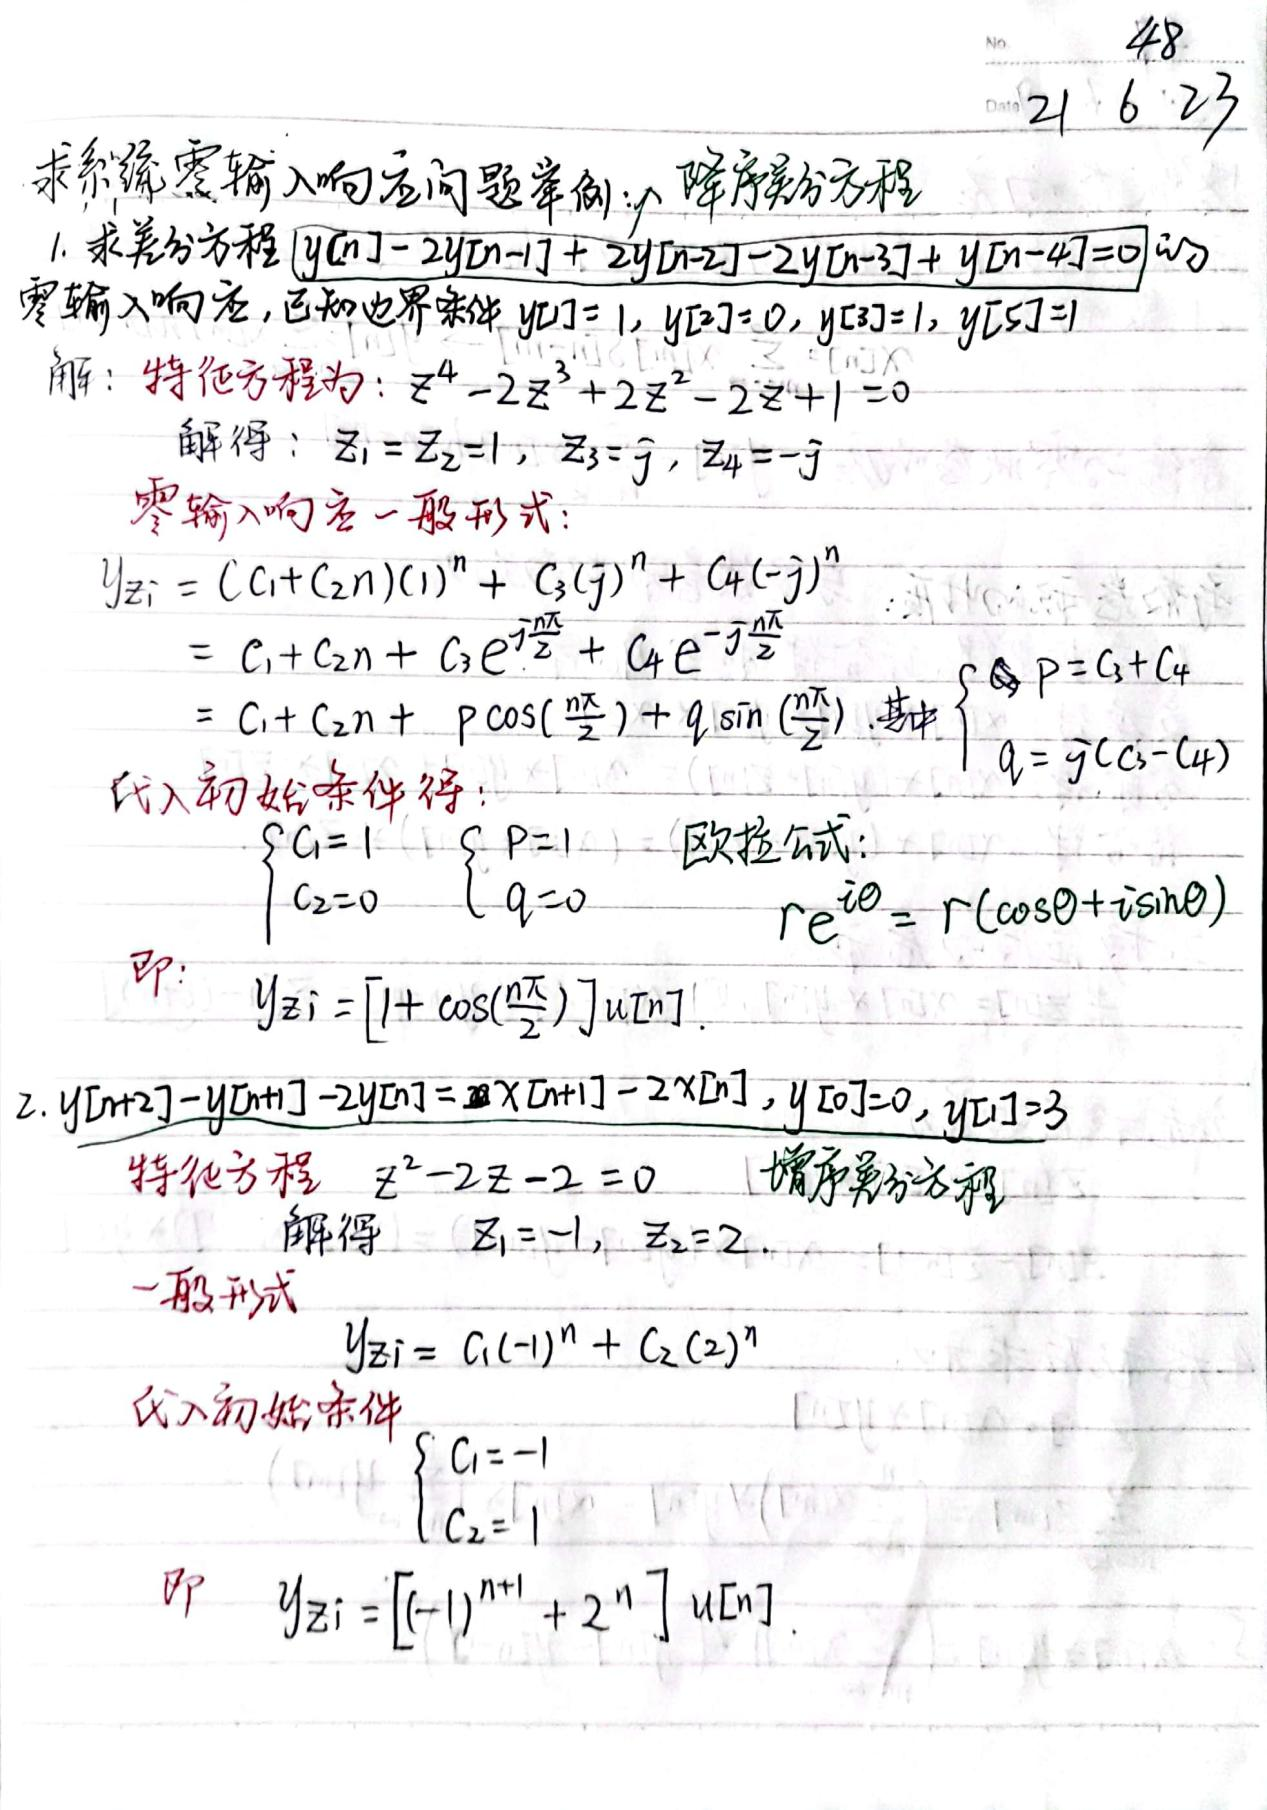 No. 48
Date 21 6 23
求系统零输入响应问题举例: 降序差分方程
1. 求差分方程 y[n]-2y[n-1]+2y[n-2]-2y[n-3]+y[n-4]=0 的
零输入响应,已知边界条件 y[1]=1, y[2]=0, y[3]=1, y[5]=1
解: 特征方程为: z⁴-2z³+2z²-2z+1=0
解得: z₁=z₂=1, z₃=j, z₄=-j
零输入响应一般形式:
yzi = (C₁+C₂n)(1)ⁿ + C₃(j)ⁿ + C₄(-j)ⁿ
= C₁+C₂n + C₃e^{j\frac{nπ}{2}} + C₄e^{-j\frac{nπ}{2}}
= C₁+C₂n + pcos(\frac{nπ}{2}) + qsin(\frac{nπ}{2}). 其中 { p=C₃+C₄
q=j(C₃-C₄)
代入初始条件得:
{ C₁=1 { p=1 欧拉公式:
C₂=0 q=0 re^{iθ} = r(cosθ+isinθ)
即: yzi = [1+cos(\frac{nπ}{2})]u[n].
2. y[n+2]-y[n+1]-2y[n]=x[n+1]-2x[n], y[0]=0, y[1]=3
特征方程 z²-2z-2=0 增序差分方程
解得 z₁=-1, z₂=2.
一般形式
yzi = C₁(-1)ⁿ + C₂(2)ⁿ
代入初始条件
{ C₁=-1
C₂=1
即 yzi = [(-1)^{n+1} + 2ⁿ] u[n].